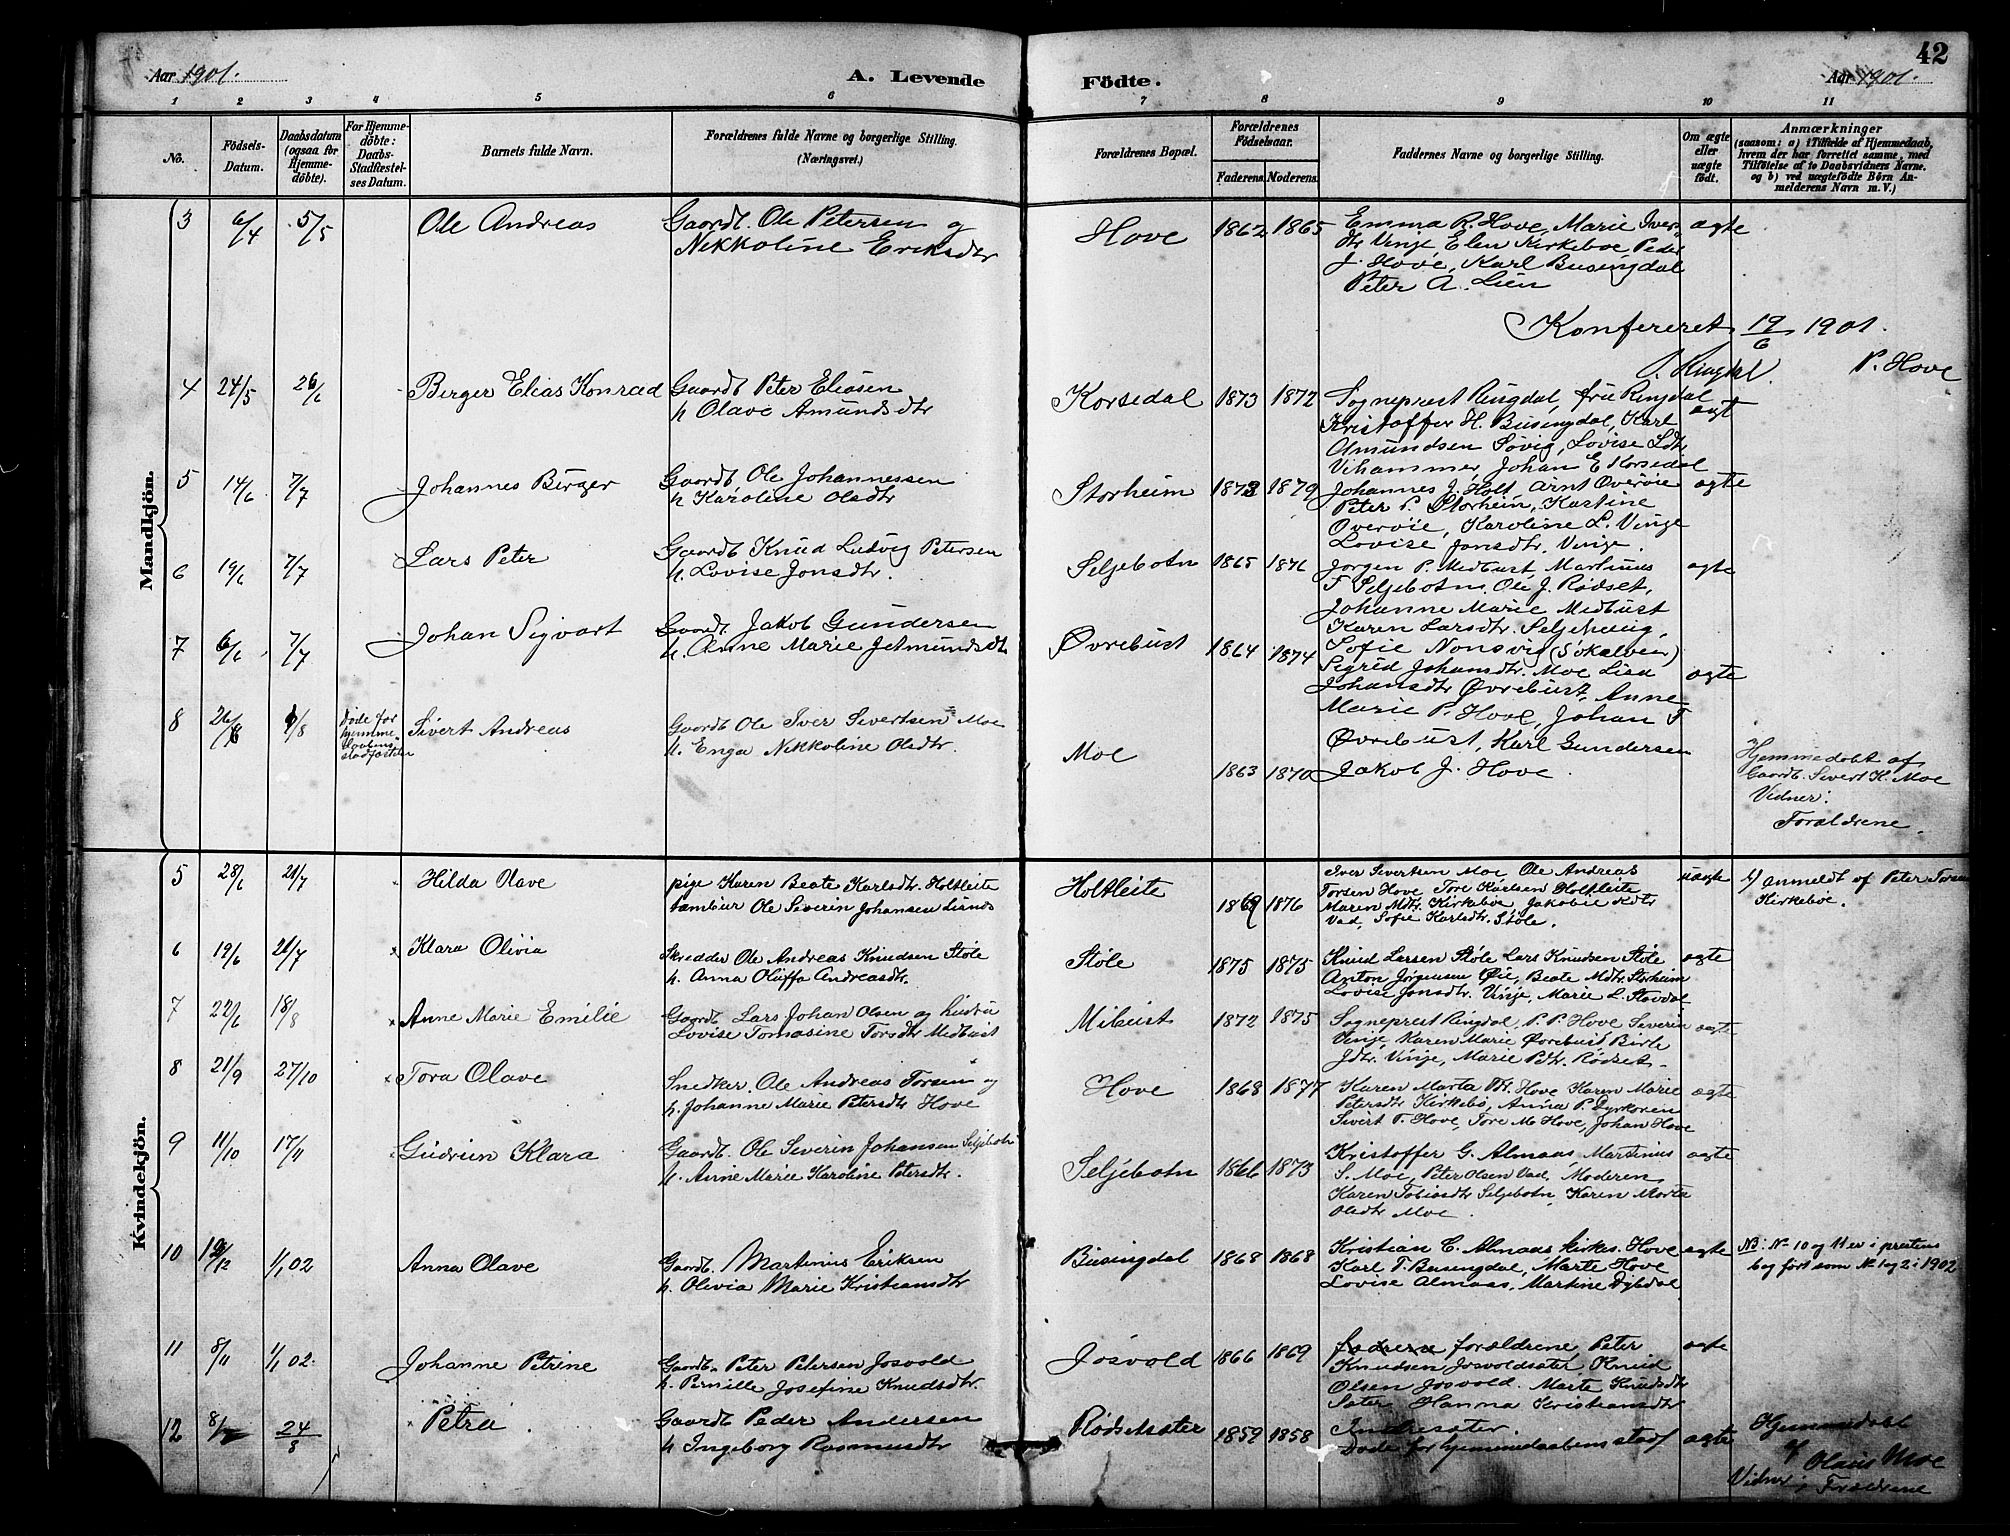 42
Aar 1901.
A. Levende
Födte.
Aar 1901.
1 2 3 4 5 6 7 8 9 10 11
No.
Födsels-
Datum.
Daabsdatum
(ogsaa for
Hjemme-
döbte).
For Hjemme-
döbte:
Daabs-
Stadfæstel-
ses Datum.
Barnets fulde Navn.
Forældrenes fulde Navne og borgerlige Stilling.
(Næringsvei.)
Forældrenes Bopæl.
Forældrenes
Födselsaar.
Faderens Moderens
Faddernes Navne og borgerlige Stilling.
Om ægte
eller
uægte
födt.
Anmærkninger
(saasom: a) i Tilfælde af Hjemmedaab,
hvem der har forrettet samme, med
Tilföielse af to Daabsvidners Navne.
og b) ved uægtefödte Börn An-
melderens Navn m.V.)
Mandkjön.
3 6/4 5/5 Ole Andreas Gaardb. Ole Petersen og
Nikkoline Eriksdtr
Hove 1862 1865 Emma R. Hove, Marie Iver-
dtr Vinje Elen Kirkeboe Peder
J. Hove, Karl Busingdal
Peter A. Lien
ægte
Konfereret 19/6 1901.
J. Ringdal. P. Hove
4 24/5 26/6 Berger Elias Konrad Gaardb Peter Eliasen
h Olave Amundsdtr
Korsedal 1873 1872 Sogneprest Ringdal, fru Ringdal
Kristoffer H. Busingdal, Karl
Amundsen Søvig, Lovise Ldtr
Vihammer, Johan E Korsedal
ægt
5 14/6 7/7 Johannes Berger Gaardb Ole Johannessen
h Karoline Olsdtr
Storheim 1873 1879 Johannes J. Holt, Arnt Overøie
Peter P. Storheim, Kartine
Overøie, Karoline L. Vinge
Lovise Jonsdtr. Vinge.
ægte
6 19/6 7/7 Lars Peter Gaardb Knud Ludvig Petersen
h. Lovise Jonsdtr.
Seljebotn 1865 1876 Jørgen P. Medbust, Martinus
T Seljebotn. Ole J. Rødset,
Johanne Marie Medbust
Karen Larsdtr. Seljehaug,
Sofie Nonsvig (Søkelven)
ægte
7 6/6 7/7 Johan Sigvart Gaardb. Jakob Gundersen
h. Anne Marie Jetmundsdtr
Øvrebust 1864 1874 Sigrid Johansdtr. Moe Lisa
Johansdtr Øvrebust, Anne
Marie P. Hove, Johan T
Øvrebust, Karl Gundersen
Jakob J. Hove.
ægte
8 26/6 1/8 Døde før
hjemme
daabens
stadfestelse
Sivert Andreas Gaardb Ole Iver Sivertsen Moe
h. Enga Nikkoline Olsdtr.
Moe 1863 1870
Hjemmedøbt af
Gaardb. Sivert K. Moe
Vidner:
Forældrene.
Kvindekjön.
5 28/6 21/7 Hilda Olave pige Karen Beate Karlsdtr. Holtleite
tambur Ole Severin Johansen
Holtleite 1869 1876 Iver Sivertsen Moe, Ole Andreas
Torsen Hove Tore Karlsen Holtleite
Maren Mdtr. Kirkebøe, Jakobie
Vad, Sofie Karlsdtr. Støle.
uægte b) anmeldt af Peter Torsen
Kirkeboe.
6 19/6 21/7 Klara Olivia Skredder Ole Andreas Knudsen Støle
h. Anna Oluffa Andreasdtr.
Støle 1875 1875 Knud Larsen Støle Lars Knudsen Støle
Anton Jørgensen Øie, Beate Mdtr. Storheim
Lovise Jonsdtr. Vinje, Marie L. Stavdal
ægte
7 22/6 18/8 Anne Marie Emilie Gaardb Lars Johan Olsen og hustru
Lovise Tomasine Torsdtr Medbust
Mibust 1872 1875 Sogneprest Ringdal, P. P. Hove Severin
Vinje, Karen Marie Øvrebust Birte
Jdtr. Vinje, Marie Pdtr. Rødset.
ægte
8 21/9 27/10 Tora Olave Snedker Ole Andreas Torsen og
h. Johanne Marie Petersdtr Hove
Hove 1868 1877 Karen Marta Tdt. Hove Karen Marie
Petersdtr Kirkebø, Anna P. Dyrkoren
Sivert T. Hove, Tore M Hove, Johan Hove
ægte
9 11/10 17/11 Gudrun Klara Gaardb. Ole Severin Johansen Seljebotn
h. Anne Marie Karoline Petersdtr.
Seljebotn 1866 1873 Kristoffer G. Almaas Martinus
S. Moe, Peter Olsen Vad, Moderen
Karen Tobiasdtr Seljebotn, Karen Marta
Olsdtr Moe.
ægte
10 19/12 1/1 02 Anna Olave Gaardb. Martinus Eriksen
h. Olivia Marie Kristiansdtr
Busingdal 1868 1868 Kristian C. Almaas Kirkes. Hove
Karl T. Busengdal, Marte Hove
Lovise Almaas, Martine Djupdal
ægte NB: No 10 og 11 er i prestens
bog ført som No 1 og 2 i 1902
11 8/11 1/1 02. Johanne Petrine Gaardb. Peter Petersen Josvold
h. Pernille Josefine Knudsdtr.
Josvold 1866 1869 forældrene, Peter
Knudsen Josvoldsæter Knud
Olsen Josvold. Marte Knudsdtr
Sæter Hanna Kristiansdtr
Indresæter.
ægte
12 24/3 Petra Gaardb Peder Andersen
h Ingeborg Rasmusdtr
Rødsetsæter 1859 1858 Døde før hjemmedaabens stadf
ægte Hjemmedøbt
af Olaus Moe
Vidner: Forældrene